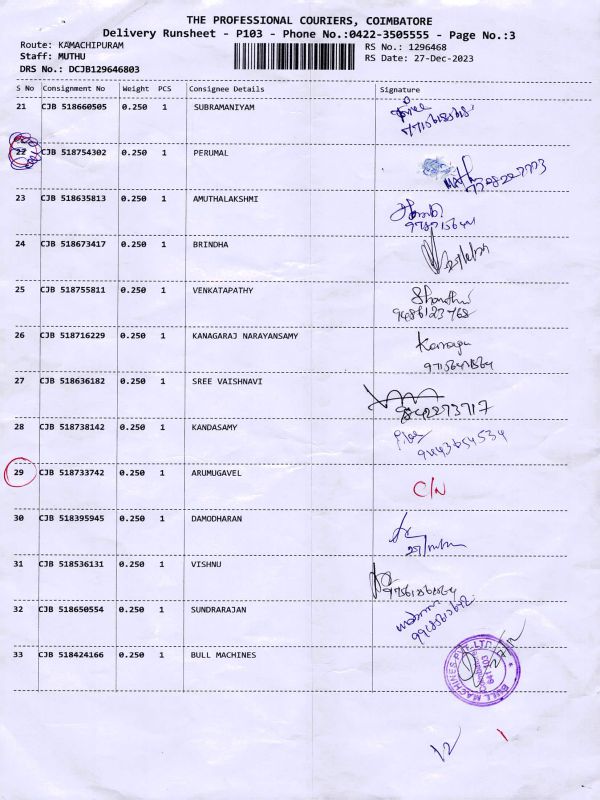 THE PROFESSIONAL COURIERS, COIMBATORE
Delivery Runsheet - P103 - Phone No.:0422-3505555 - Page No.:3
Route: KAMACHIPURAM
RS No.: 1296468
Staff: MUTHU
RS Date: 27-Dec-2023
DRS No.: DCJB129646803
S No Consignment No Weight PCS Consignee Details Signature
21 CJB 518660505 0.250 1 SUBRAMANIYAM
22 CJB 518754302 0.250 1 PERUMAL
23 CJB 518635813 0.250 1 AMUTHALAKSHMI
24 CJB 518673417 0.250 1 BRINDHA
25 CJB 518755811 0.250 1 VENKATAPATHY
9486123768
26 CJB 518716229 0.250 1 KANAGARAJ NARAYANSAMY
27 CJB 518636182 0.250 1 SREE VAISHNAVI
9842273717
28 CJB 518738142 0.250 1 KANDASAMY
9443654534
29 CJB 518733742 0.250 1 ARUMUGAVEL C/N
30 CJB 518395945 0.250 1 DAMODHARAN
31 CJB 518536131 0.250 1 VISHNU
32 CJB 518650554 0.250 1 SUNDRARAJAN
33 CJB 518424166 0.250 1 BULL MACHINES
BULL MACHINES PVT-LTD
12 1